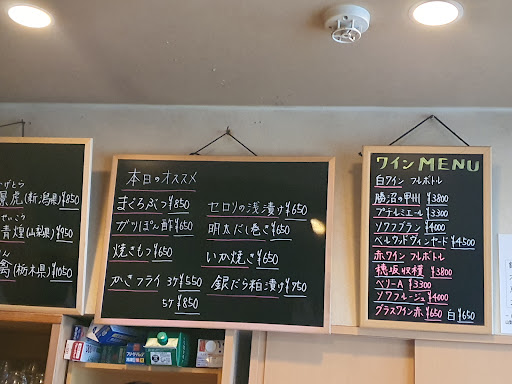 景虎(新潟県)¥850
せいこう
青煌(山梨県)¥950
禽(栃木県)¥1050
本日のオススメ
まぐろぶつ¥850
ガツぽん酢¥650
焼きもつ¥650
かきフライ 3ケ¥550
5ケ¥850
セロリの浅漬け¥650
明太だし巻き¥650
いか焼き¥650
銀だら粕漬け¥750
ワインMENU
白ワイン フルボトル
勝沼の甲州 ¥3800
プチルミエール ¥3300
ソワフブラン ¥4000
ベルウッドヴィンヤード ¥4500
赤ワイン フルボトル
穂坂収穫 ¥3800
ベリーA ¥3300
ソワフルージュ ¥4000
グラスワイン赤¥650 白¥650